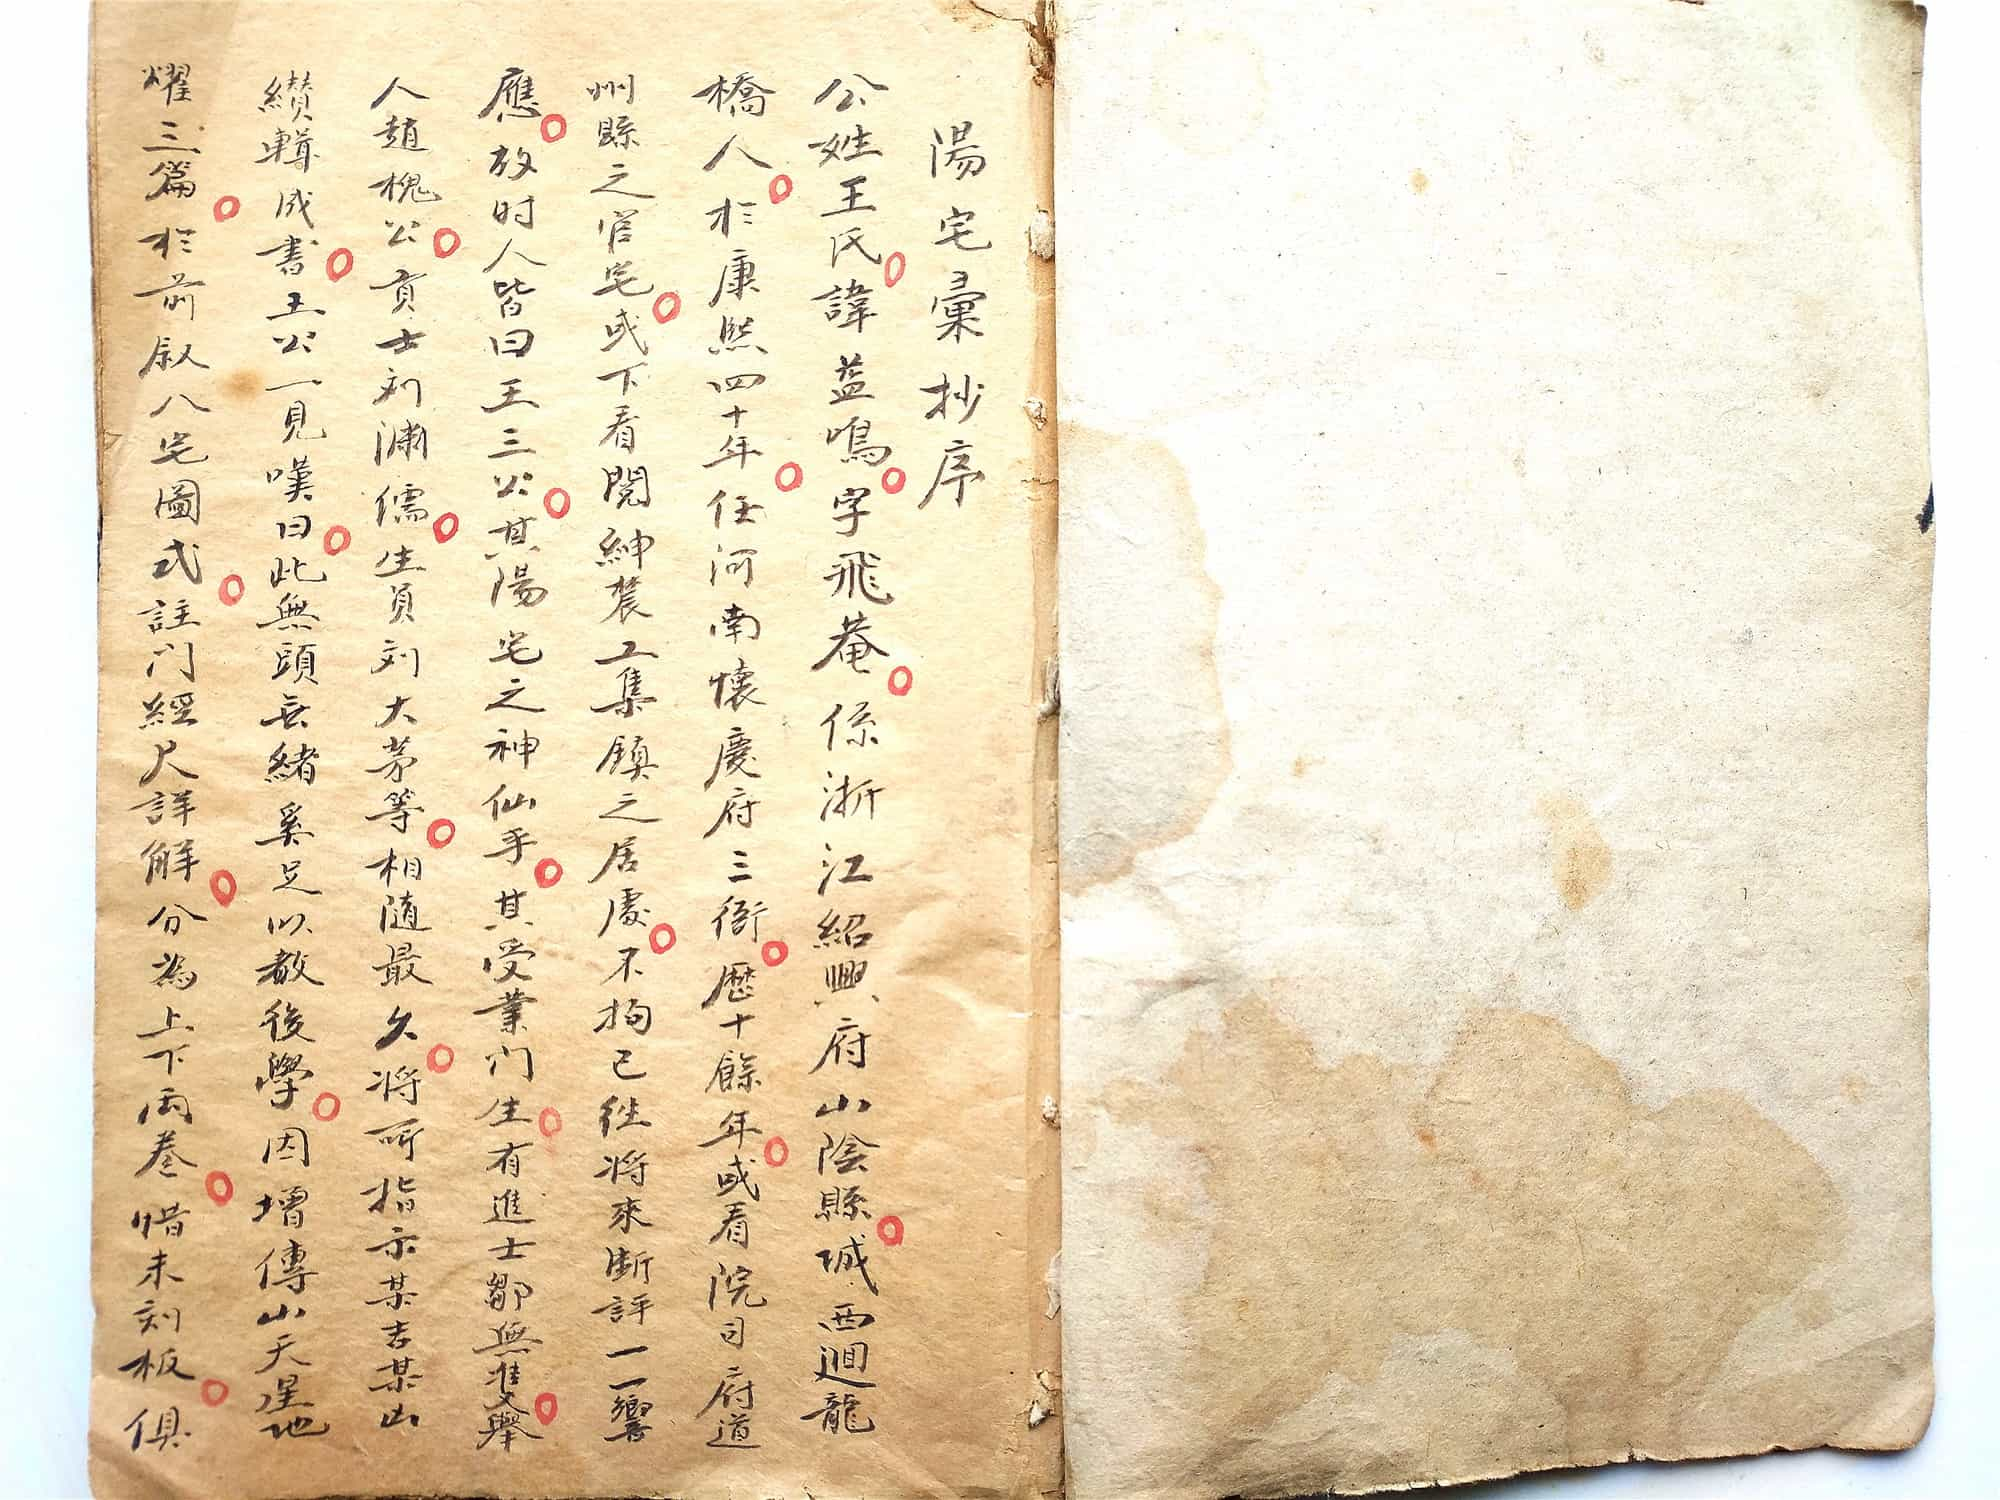 陽宅彙抄序
公姓王氏諱益鳴字飛菴係浙江紹興府山陰縣城西迴龍
橋人於康熙四十年任河南懷慶府三衙歷十餘年或看院司府道
州縣之官宅或下看閱紳農工集鎮之居處不拘已往將來斷評一一響
應故时人皆曰王三公其陽宅之神仙乎其受業門生有進士鄒無舉
人趙槐公貢士刘溯儒生員刘大茅等相隨最久将所指示某吉某凶
纉輯成書王公一見嘆曰此無頭無緒奚足以教後學因增傳山天星地
耀三篇於前叙八宅圖式註门經尺詳解分為上下两卷惜未刻板俱